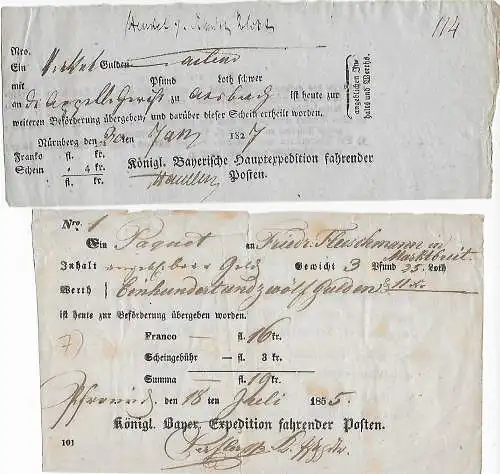 114
Nro.
Ein Gulden
mit Pfund Loth schwer
an zu ist heute zur
weiteren Beförderung übergeben, und darüber dieser Schein ertheilt worden.
angeblichen In-
halts und Werths.
Nürnberg den 30ten Jan 1827
Franko fl. kr.
Schein " 4 kr.
fl. kr.
Königl. Bayerische Hauptexpedition fahrender
Posten.
Nro. 1
Ein Paquet an Friedr. Fleischmann in
Marktbreit
Inhalt Geld Gewicht 3 Pfund 25. Loth
Werth Einhundertundzwölf Gulden 11 kr
ist heute zur Beförderung übergeben worden.
7)
Franco — fl. 16 kr.
Scheingebühr — fl. 3 kr.
Summa — fl. 19 kr.
den 18ten Juli 1855.
Königl. Bayer. Expedition fahrender Posten.
10]